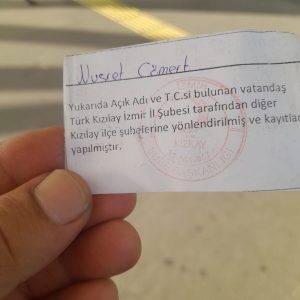 Nusret Cömert
Yukarıda Açık Adı ve T.C.si bulunan vatandaş
Türk Kızılay İzmir İl Şubesi tarafından diğer
Kızılay ilçe şubelerine yönlendirilmiş ve kayıtları
yapılmıştır.